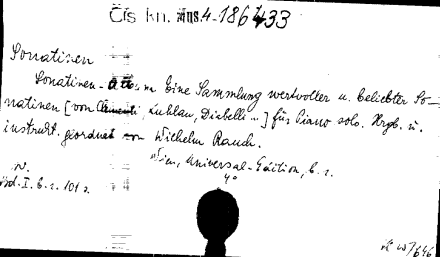 Čís. kn. mus. 4-186433
Sonatinen
Sonatinen-Album Eine Sammlung wertvoller u. beliebter So-
natinen [von Clementi, Kuhlau, Diabelli ...] für Piano solo. Hrgb. u.
instrukt. geordnet von Wilhelm Rauch.
Wien, Universal-Edition, b. r.
4°
N.
Bd. I. b. r. 101 s.